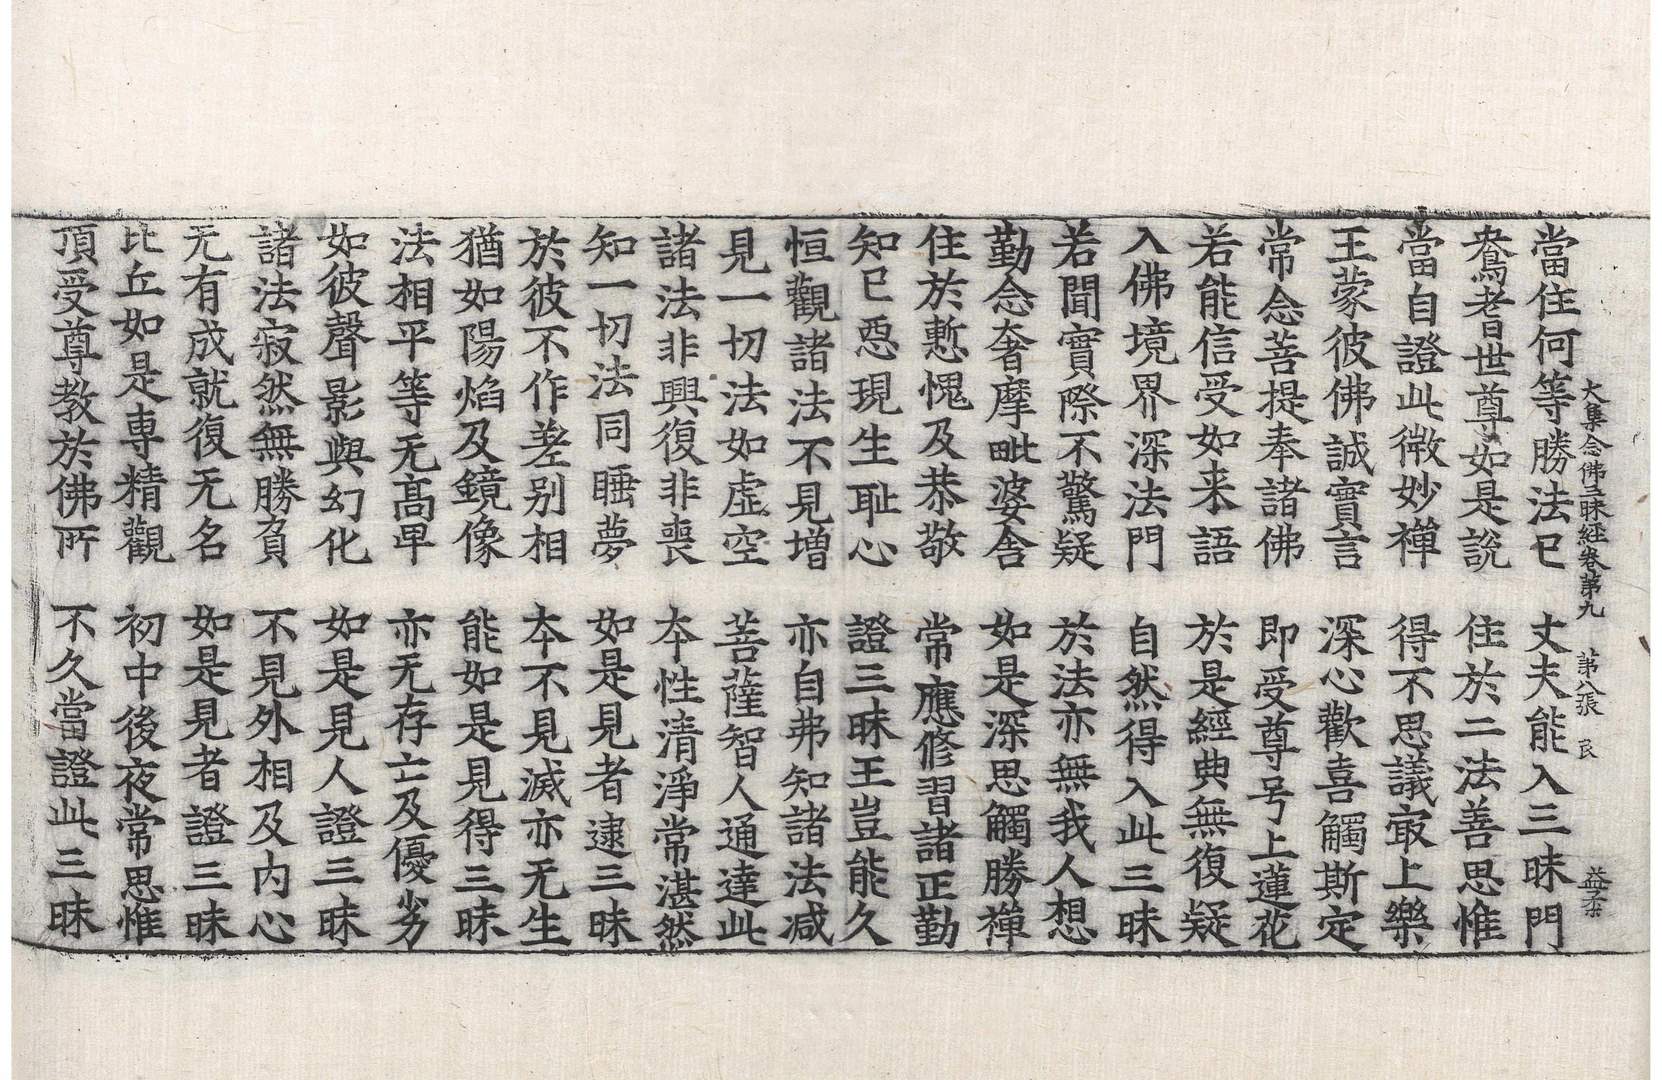 大集念佛三昧經卷第九　第八張　良　益柔
當住何等勝法已　丈夫能入三昧門
耆老世尊如是說　住於二法善思惟
當自證此微妙禪　得不思議㝡上樂
王蒙彼佛誠實言　深心歡喜觸斯定
常念菩提奉諸佛　即受尊号上蓮花
若能信受如来語　於是經典無復疑
入佛境界深法門　自然得入此三昧
若聞實際不驚疑　於法亦無我人想
勤念奢摩毗婆舍　如是深思觸勝禪
住於慙愧及恭敬　常應修習諸正勤
知已惡現生耻心　證三昧王豈能久
恒觀諸法不見增　亦自弗知諸法减
見一切法如虛空　菩薩智人通達此
諸法非興復非喪　夲性清淨常湛然
知一切法同睡夢　如是見者逮三昧
於彼不作差别相　夲不見滅亦无生
猶如陽焰及鏡像　能如是見得三昧
法相平等无高卑　亦无存亡及優劣
如彼聲影與幻化　如是見人證三昧
諸法寂然無勝負　不見外相及内心
无有成就復无名　如是見者證三昧
比丘如是専精觀　初中後夜常思惟
頂受尊教於佛所　不久當證此三昧